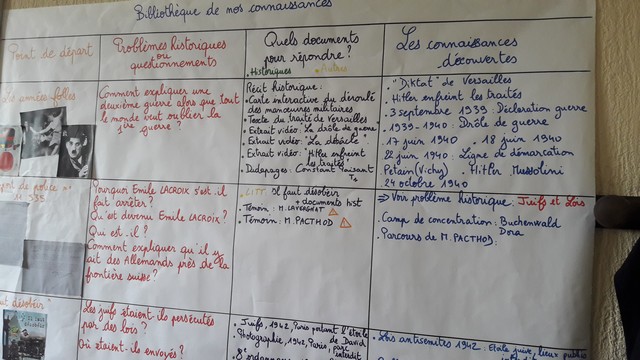 Bibliothèque de nos connaissances
Point de départ
Problèmes historiques
ou
questionnements
Quels documents
pour répondre ?
• Historiques • Autres
Les connaissances
découvertes
Les années folles
Comment expliquer une
deuxième guerre alors que tout
le monde veut oublier la
1ère guerre ?
Récit historique:
• Carte interactive du déroulé
des manoeuvres militaires
• Texte du traité de Versailles
• Extrait vidéo: La drôle de guerre
• Extrait vidéo: "La débâcle"
• Extrait vidéo: "Hitler enfreint
les traités
Didapages: Constant Vaisant
• "Diktat" de Versailles
• Hitler enfreint les traités
• 3 septembre 1939: Déclaration guerre
• 1939-1940: Drôle de guerre
17 juin 1940 • 18 juin 1940
22 juin 1940: Ligne de démarcation
Petain (Vichy) • Hitler Mussolini
24 octobre 1940
port de police n°
Pourquoi Emile LACROIX s'est-il
fait arrêter ?
Qu'est devenu Emile LACROIX ?
Qui est-il ?
Comment expliquer qu'il y
ait des Allemands près de la
frontière suisse ?
LITT Il faut désobéir
+ documents hist
• Témoin: M. LAVERGNAT
• Témoin: M. PACTHOD
=> Voir problème historique: Juifs et Lois
• Camp de concentration: Buchenwald
Dora
• Parcours de M. PACTHOD:
ut désobéir"
Les juifs étaient-ils persécutés
par des lois ?
Où étaient-ils envoyés ?
• Juifs, 1942, Paris portant l'étoile
de David
• Photographie, 1942, Paris, parc
interdit
• Lois antisémites 1942: Etoile juive, lieux publics